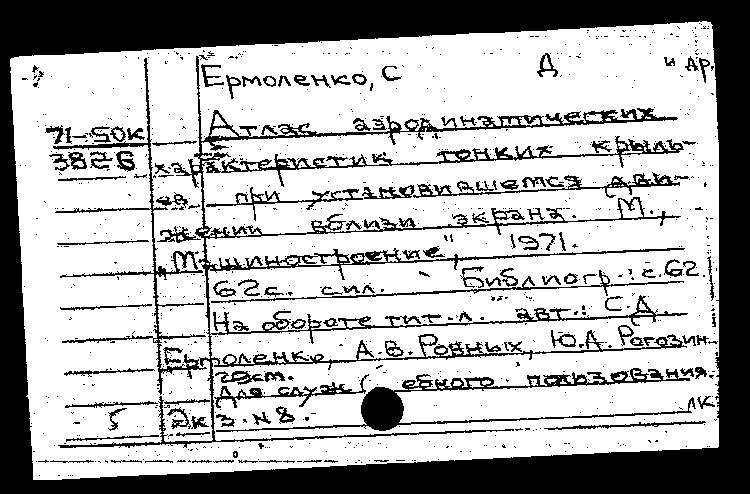 Ермоленко, С Д и др.
71-50к Атлас аэродинамических
3826 характеристик тонких крыль-
ев при установившемся дви-
жении вблизи экрана. М.,
„Машиностроение", 1971.
62с. с ил. Библиогр.: с.62
На обороте тит.л. авт.: С.Д.
Ермоленко, А.В.Ровных, Ю.А.Рогозин.
Для служебного пользования.
5 Эк з. N8. ЛК